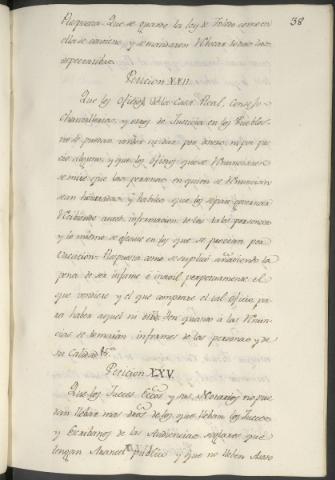 38
Respuesta. Que se guarde la ley de Toledo como en
ella se contiene y se mandaron librar sobre las
Peticion XXII.
Que los Oficios de la Casa Real, Consejo
Chancillerias, y otros de Justicia en los Pueblos
no se puedan vender ni dar por dinero ni por pre
cio alguno, y que los Oficios que se renunciaren
se mire que las personas en quien se renuncian
sean honradas y habiles que los sepan governar
recibiendo antes informacion de las tales personas
y lo mismo se efectue en los que se provean por
vacacion = Respuesta como se suplica añadiendo la
pena de ser infame è inavil perpetuamente el
que vendiere y el que comprare el tal Oficio pa
ra haber aquel ni otro. Iten quanto à las renun
cias se tomarán informes de las personas y de
su calidad &c.
Peticion LXV.
Que los Jueces Eccos y sus Notarios no pue
dan llebar mas dros de los que lleban los Jueces
y Escribanos de las Audiencias seglares que
tengan Arancel publico y que no lleben